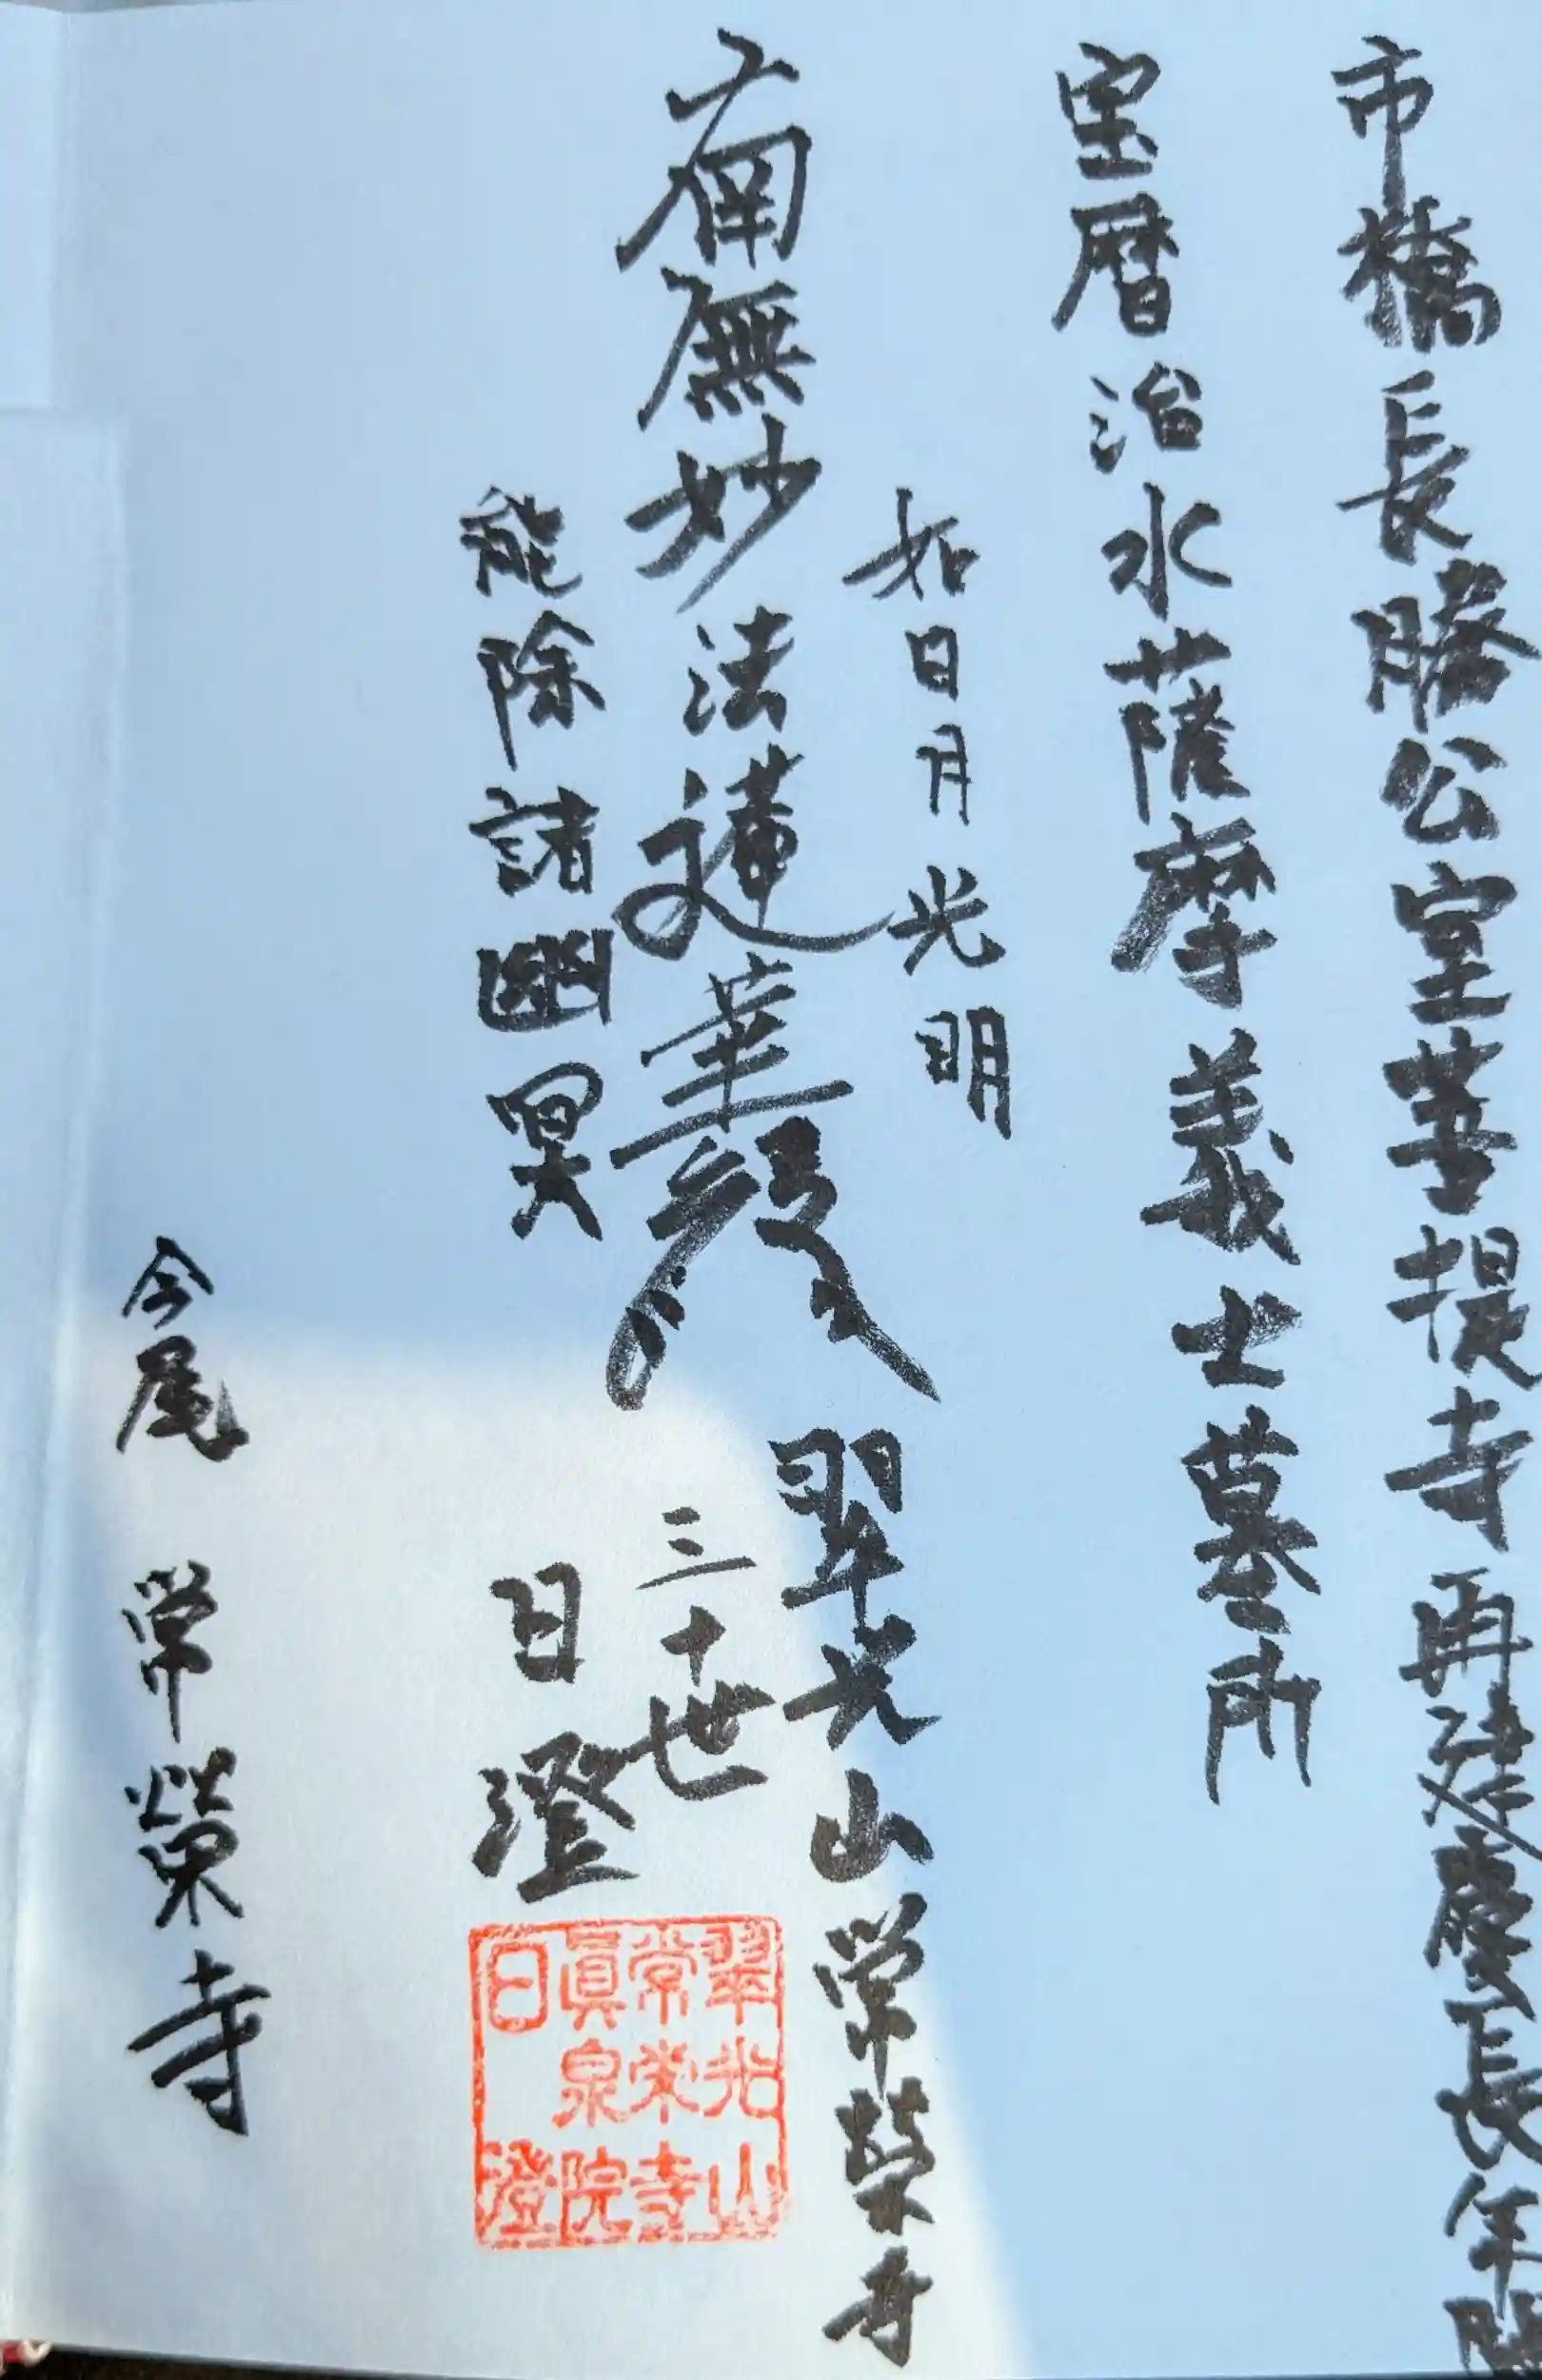 市橋長勝公室菩提寺再建慶長年間
宝暦治水薩摩義士墓所
如日月光明
南無妙法蓮華経
能除諸幽冥
翠光山常栄寺
三十世
日澄
翠光山
常栄寺
眞泉院
日澄
今尾 常榮寺